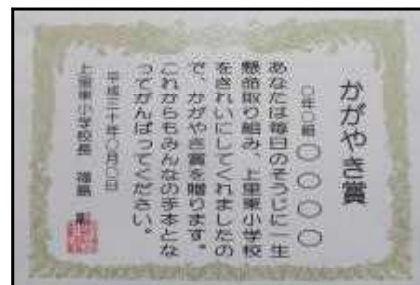 かがやき賞
○年○組 ○○○○
あなたは毎日のそうじに一生
懸命取り組み、上里東小学校
をきれいにしてくれましたの
で、かがやき賞を贈ります。
これからもみんなの手本とな
ってがんばってください。
平成三十年○月○日
上里東小学校長 福島